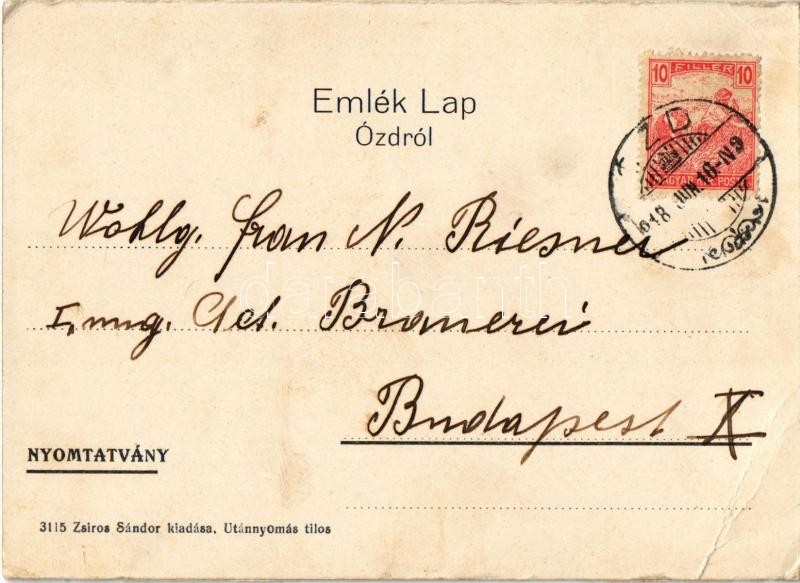 10 FILLER 10
MAGYAR KIR. POSTA
ZD
918 JUN. 10-N9
Emlék Lap
Ózdról
Wohlg. Frau N. Riesner
I. ung. Act. Brauerei
Budapest X
NYOMTATVÁNY
3115 Zsiros Sándor kiadása, Utánnyomás tilos
darabanth